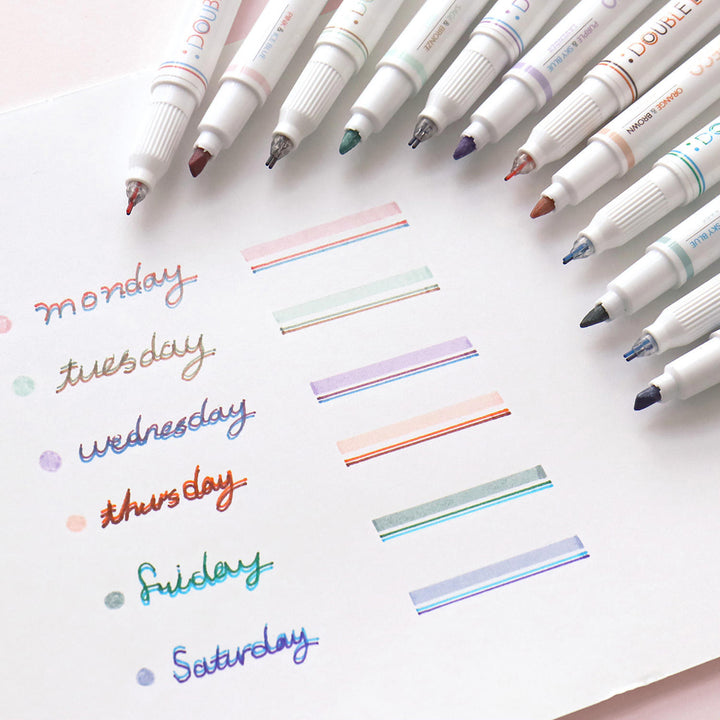 DOUBLE
PINK & SKY BLUE
SAGE & BRONZE
PURPLE & SKY BLUE
DOUBLE
ORANGE & BROWN
SKY BLUE
monday
tuesday
wednesday
thursday
friday
Saturday